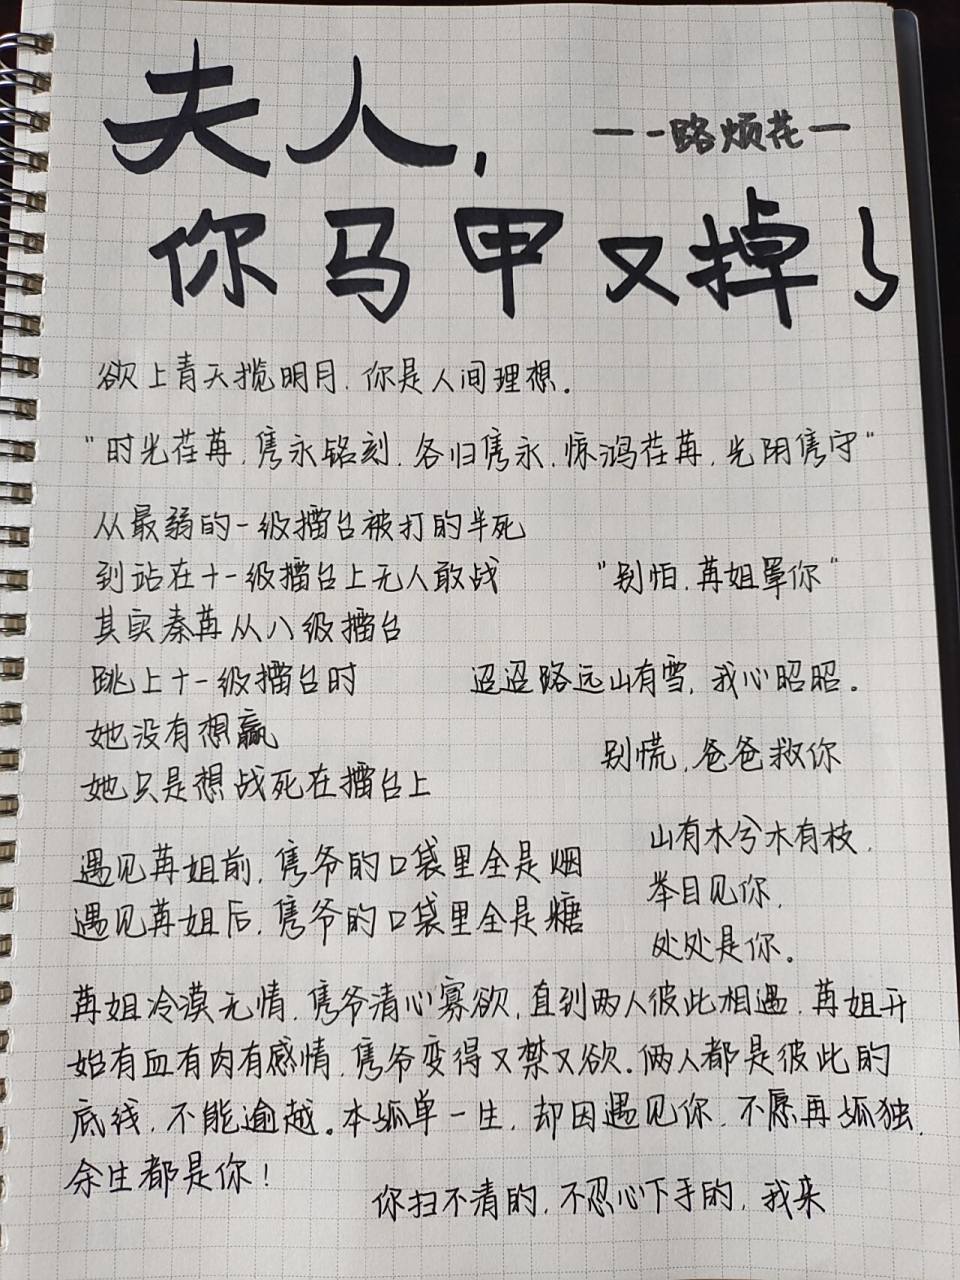 夫人，
——一路烦花—
你马甲又掉了
欲上青天揽明月，你是人间理想。
"时光荏苒，隽永铭刻，各归隽永，惊鸿荏苒，光阴隽守"
从最弱的一级擂台被打的半死
到站在十一级擂台上无人敢战
"别怕，苒姐罩你"
其实秦苒从八级擂台
跳上十一级擂台时
迢迢路远山有雪，我心昭昭。
她没有想赢
别慌，爸爸救你
她只是想战死在擂台上
山有木兮木有枝，
遇见苒姐前，隽爷的口袋里全是烟
举目见你，
遇见苒姐后，隽爷的口袋里全是糖
处处是你。
苒姐冷漠无情，隽爷清心寡欲，直到两人彼此相遇，苒姐开
始有血有肉有感情，隽爷变得又禁又欲。俩人都是彼此的
底线，不能逾越。本孤单一生，却因遇见你，不愿再孤独，
余生都是你！
你扫不清的，不忍心下手的，我来